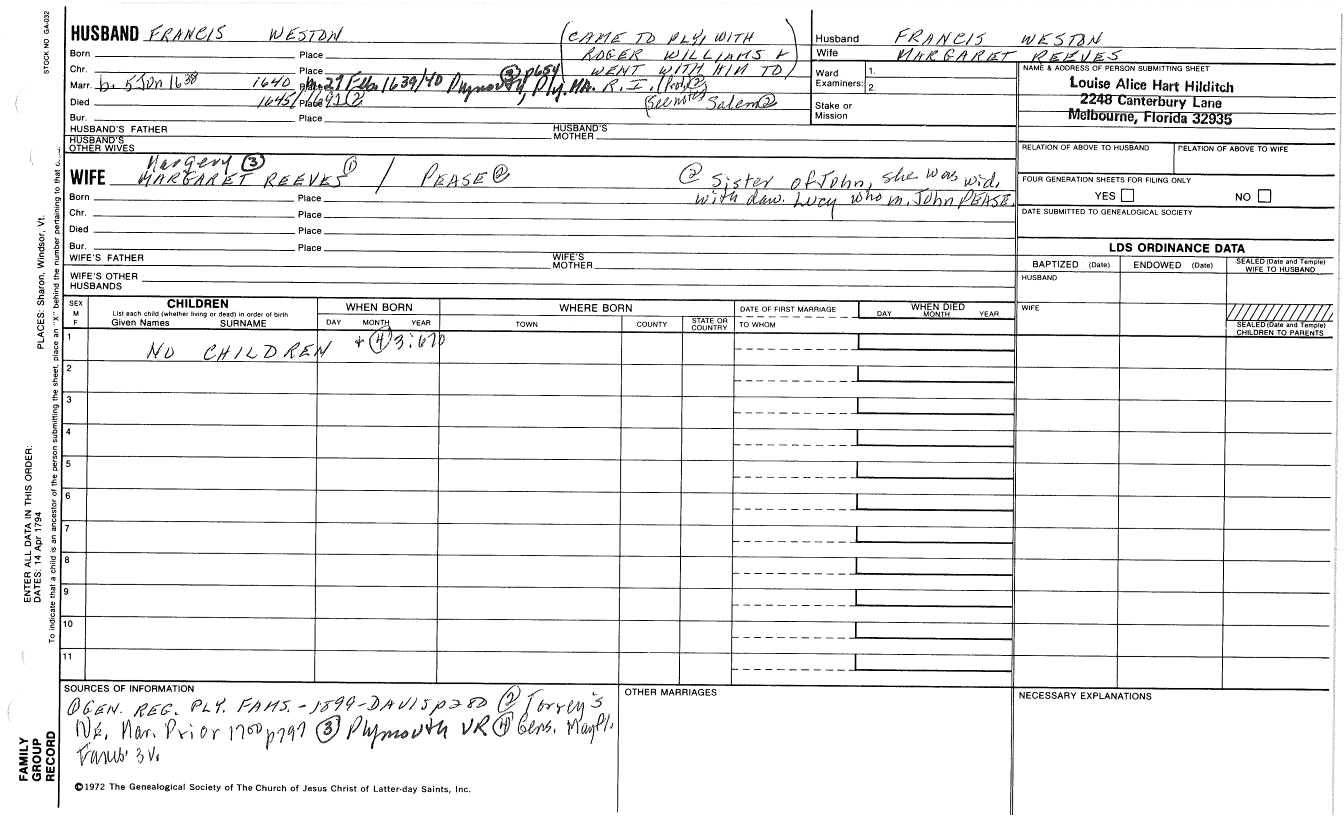 STOCK NO GA-032
HUSBAND FRANCIS WESTON
(CAME TO PLY, WITH
ROGER WILLIAMS &
WENT WITH HIM TO)
R. I. (Prob. ②
(See notes Salem ②
Born Place
Chr. Place
Marr. b. 5 Jun 1638 1640 m. 27 Feb. 1639/40 Plymouth, Ply. MA. ③ p654
Died 1645/1691 ② Place
Bur. Place
HUSBAND'S FATHER HUSBAND'S MOTHER
HUSBAND'S OTHER WIVES
Husband FRANCIS WESTON
Wife MARGARET REEVES
Ward Examiners: 1.
2.
Stake or Mission
NAME & ADDRESS OF PERSON SUBMITTING SHEET
Louise Alice Hart Hilditch
2248 Canterbury Lane
Melbourne, Florida 32935
RELATION OF ABOVE TO HUSBAND RELATION OF ABOVE TO WIFE
FOUR GENERATION SHEETS FOR FILING ONLY
YES NO
DATE SUBMITTED TO GENEALOGICAL SOCIETY
Margery ③
WIFE MARGARET REEVES ① / PEASE ② ② Sister of John, she was wid.
with dau. Lucy who m. John PEASE.
Born Place
Chr. Place
Died Place
Bur. Place
WIFE'S FATHER WIFE'S MOTHER
WIFE'S OTHER HUSBANDS
LDS ORDINANCE DATA
BAPTIZED (Date) ENDOWED (Date) SEALED (Date and Temple) WIFE TO HUSBAND
HUSBAND
WIFE
SEALED (Date and Temple) CHILDREN TO PARENTS
SEX M F
CHILDREN
List each child (whether living or dead) in order of birth
Given Names SURNAME
WHEN BORN
DAY MONTH YEAR
WHERE BORN
TOWN COUNTY STATE OR COUNTRY
DATE OF FIRST MARRIAGE
TO WHOM
WHEN DIED
DAY MONTH YEAR
1 NO CHILDREN + ④ 3:670
2
3
4
5
6
7
8
9
10
11
SOURCES OF INFORMATION
① GEN. REG. PLY. FAMS. - 1899 - DAVIS p 280 ② Torrey's
N.E. Mar. Prior 1700 p797 ③ Plymouth VR ④ Gens. Mayfl.
Fams. 3 V.
OTHER MARRIAGES
NECESSARY EXPLANATIONS
©1972 The Genealogical Society of The Church of Jesus Christ of Latter-day Saints, Inc.
FAMILY GROUP RECORD
ENTER ALL DATA IN THIS ORDER:
DATES: 14 Apr 1794
PLACES: Sharon, Windsor, Vt.
To indicate that a child is an ancestor of the person submitting the sheet, place an "X" behind the number pertaining to that c